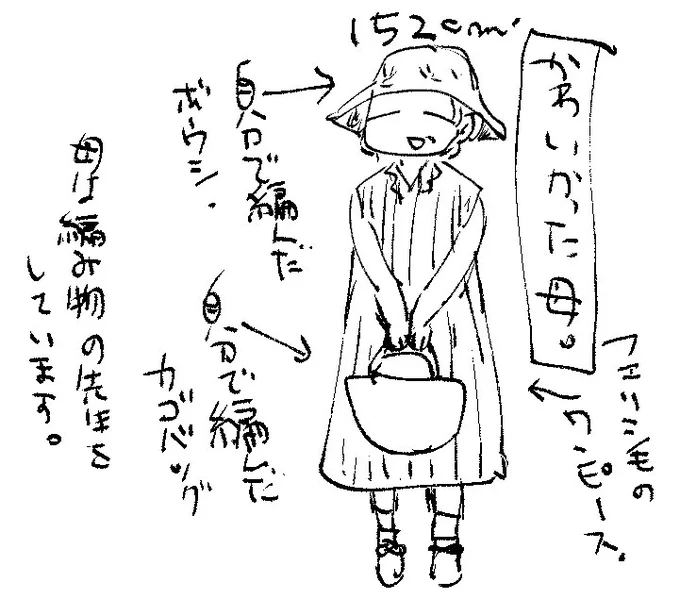 152cm
かわいかった母。
フェリシモの
ワンピース。
自分で編んだ
ボウシ.
自分で編んだ
カゴバッグ
母は編み物の先生を
しています。